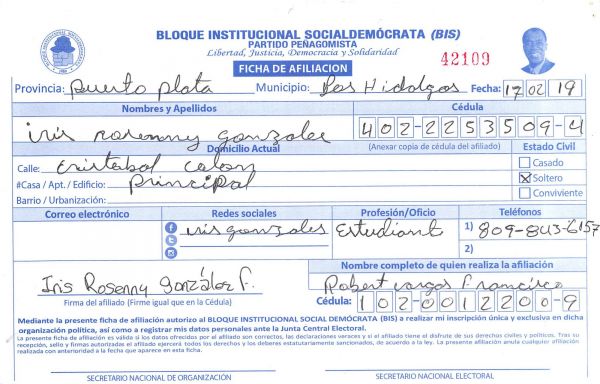 BLOQUE INSTITUCIONAL SOCIALDEMÓCRATA (BIS)
PARTIDO PEÑAGOMISTA
Libertad, Justicia, Democracia y Solidaridad
FICHA DE AFILIACION
42109
Provincia: Puerto Plata Municipio: Los Hidalgos Fecha: 17/02/19
Nombres y Apellidos Cédula
iris rosenny gonzales 402-2253509-4
Domicilio Actual (Anexar copia de cédula del afiliado) Estado Civil
Calle: Cristobal Colon Casado
#Casa / Apt. / Edificio: Principal Soltero
Barrio / Urbanización: Conviviente
Correo electrónico Redes sociales Profesión/Oficio Teléfonos
iris gonzales Estudiant 1) 809-843-6157
2)
Nombre completo de quien realiza la afiliación
Iris Rosenny González F. Robert vargas Francisco
Firma del afiliado (Firme igual que en la Cédula) Cédula: 102-0012200-9
Mediante la presente ficha de afiliación autorizo al BLOQUE INSTITUCIONAL SOCIAL DEMÓCRATA (BIS) a realizar mi inscripción única y exclusiva en dicha
organización política, así como a registrar mis datos personales ante la Junta Central Electoral.
La presente ficha de afiliación es válida si los datos ofrecidos por el afiliado son correctos, las declaraciones veraces y si el afiliado tiene el disfrute de sus derechos civiles y políticos. Tras su
recepción, sello y firmas autorizadas el afiliado ejercerá todos los derechos y los deberes estatutariamente sancionados, de acuerdo a la ley. La presente afiliación anula cualquier afiliación
realizada con anterioridad a la fecha que aparece en esta ficha.
SECRETARIO NACIONAL DE ORGANIZACIÓN SECRETARIO NACIONAL ELECTORAL